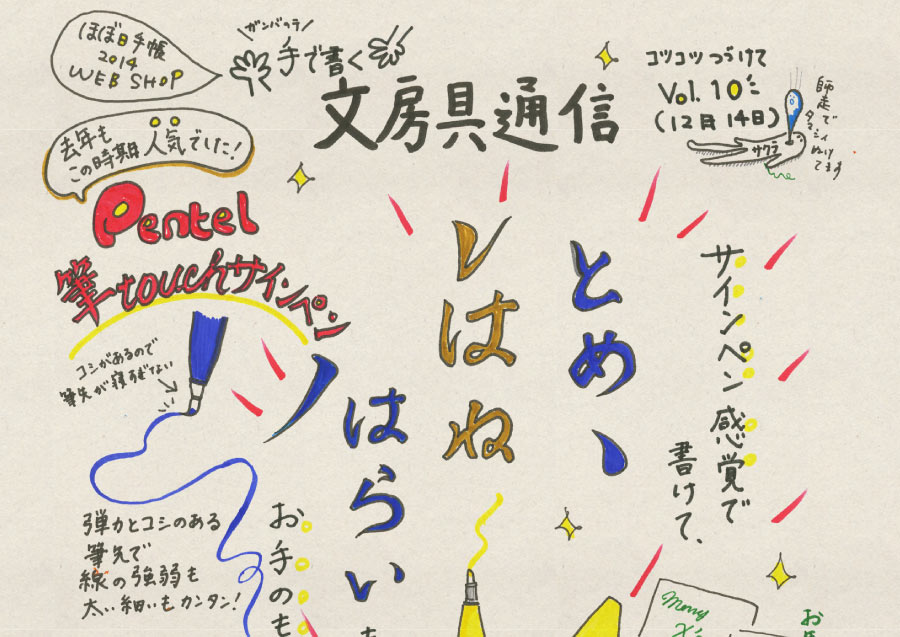 ほぼ日手帳
2014
WEB SHOP
ガンバッテ
手で書く
文房具通信
コツコツつづけて
Vol.10
(12月14日)
師走で
タマシイ
ぬけ
てます
サクラ
去年も
この時期人気でした!
Pentel
筆touchサインペン
サインペン感覚で
書けて、
とめ、
はね
はらい
お手のも
コシがあるので
筆先が寝すぎない
弾力とコシのある
筆先で
線の強弱も
太い細いもカンタン!
Merry
X'